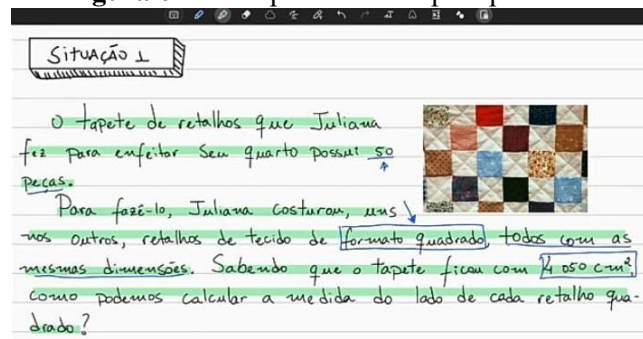 SITUAÇÃO 1
O tapete de retalhos que Juliana
fez para enfeitar seu quarto possui 50
peças.
Para fazê-lo, Juliana costurou, uns
nos outros, retalhos de tecido de formato quadrado, todos com as
mesmas dimensões. Sabendo que o tapete ficou com 4 050 cm²
como podemos calcular a medida do lado de cada retalho qua-
drado?